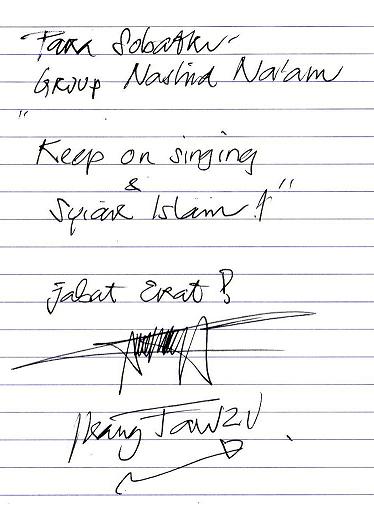 Para Sobatku
Group Nashid Na'am
"
Keep on singing
&
Syiar Islam !"
Jabat Erat !
Kang Tawzu